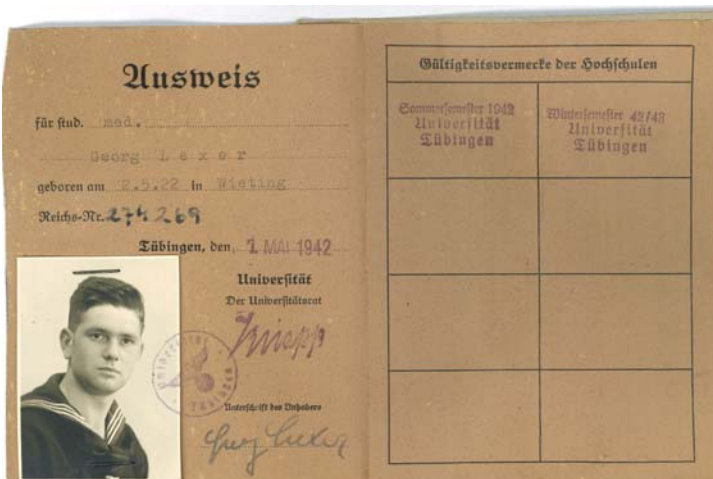 Ausweis
für stud. med.
Georg Lexer
geboren am 2.5.22 in Wieting
Reichs-Nr. 274269
Tübingen, den 1. MAI 1942
Universität
Der Universitätsrat
Knapp
Universität Tübingen
Unterschrift des Inhabers
Georg Lexer
Gültigkeitsvermerke der Hochschulen
Sommersemester 1942
Universität
Tübingen
Wintersemester 42/43
Universität
Tübingen